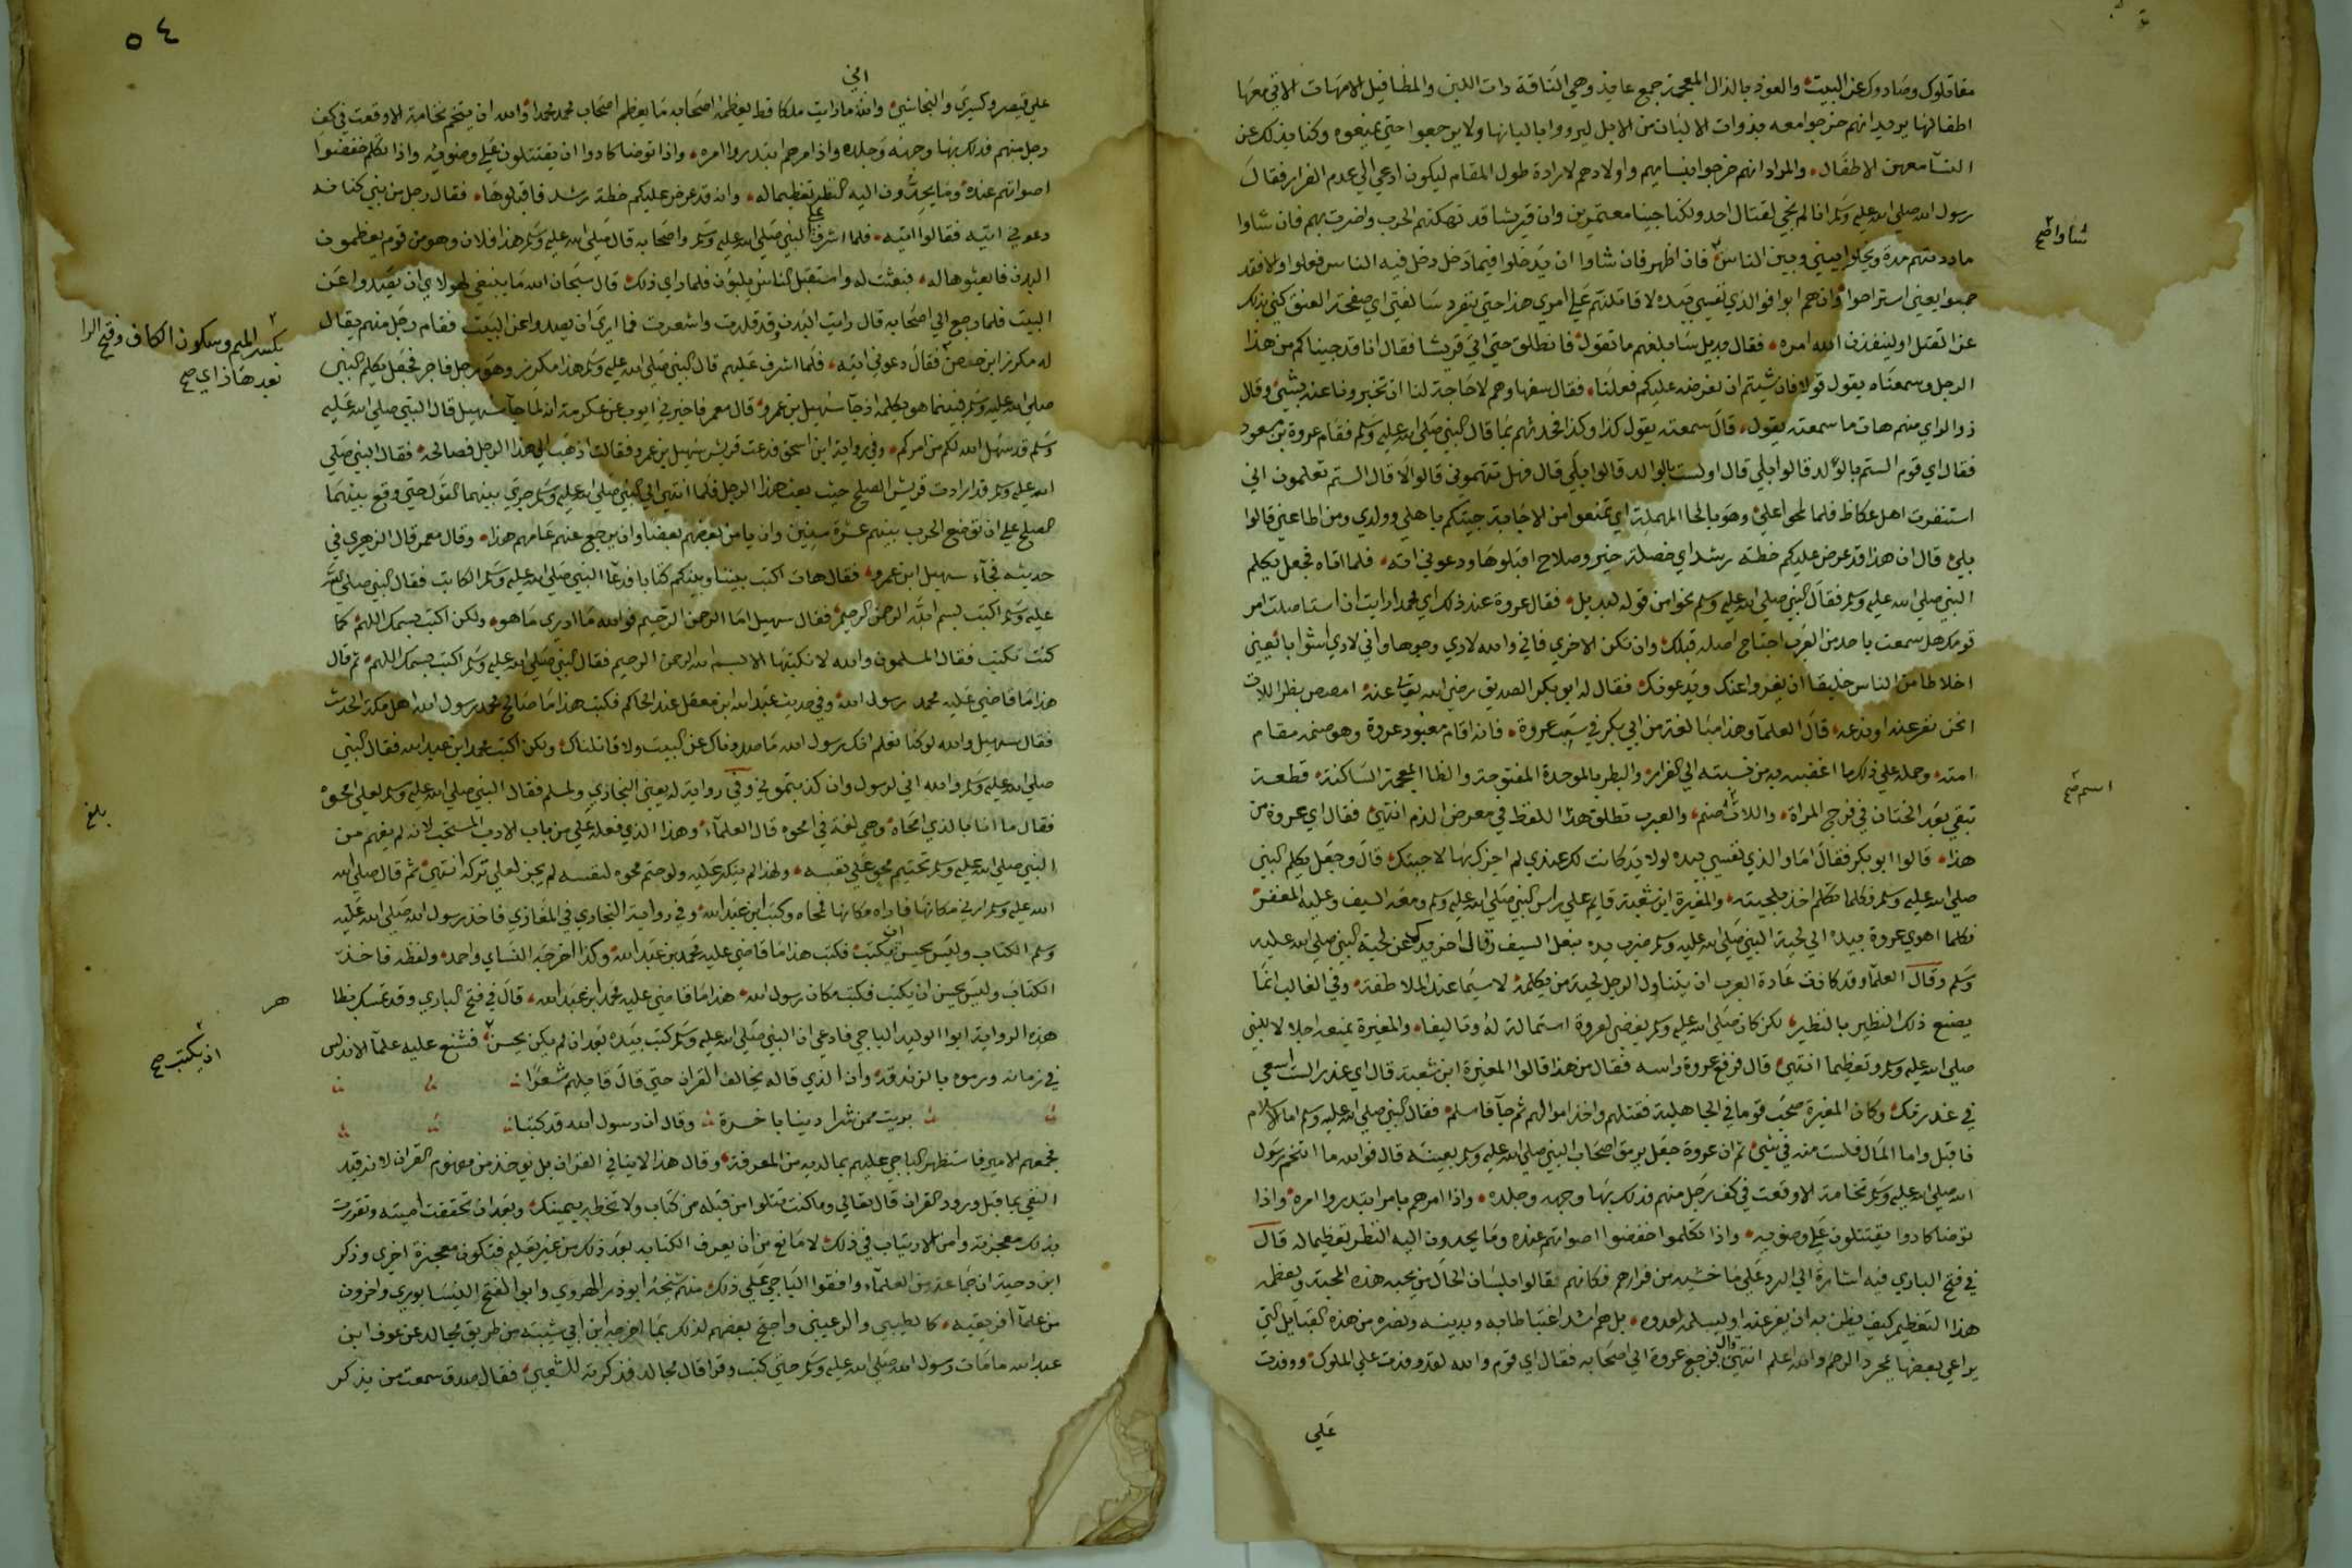 مقاتلوك وصادوك عن البيت والعوذ بالذال المعجمة جمع عايذ وهي الناقة ذات اللبن والمطافيل الامهات الاتي معها
اطفالها يريد انهم خرجوا معه بذوات الالبان من الابل ليرووا بالبانها ولا يرجعوا حتى يمنعوه وكنا بذلك عن
النسا معهن الاطفال والمراد انهم خرجوا بنسايهم واولادهم لارادة طول المقام ليكون ادعي الي عدم الفرار فقال
رسول الله صلي الله عليه وسلم انا لم نجي لقتال احد ولكنا جينا معتمرين وان قريشا قد نهكتهم الحرب واضرت بهم فان شاوا
ماددتهم مدة ويخلوا بيني وبين الناس فان اظهر فان شاوا ان يدخلوا فيما دخل فيه الناس فعلوا والا فقد
جموا يعني استراحوا وان هم ابوا فوالذي نفسي بيده لاقاتلنهم علي امري هذا حتى تنفرد سالفتي اي صفحة العنق كني بذلك
عن القتل او لينفذن الله امره فقال بديل سابلغهم ما تقول فانطلق حتى اتي قريشا فقال انا قد جيناكم من هذا
الرجل وسمعناه يقول قولا فان شيتم ان نعرضه عليكم فعلنا فقال سفهاوهم لا حاجة لنا ان تخبرونا عنه بشي وقال
ذو الراي منهم هات ما سمعته يقول قال سمعته يقول كذا وكذا فحدثهم بما قال النبي صلي الله عليه وسلم فقام عروة بن مسعود
فقال اي قوم الستم بالولد قالوا بلي قال اولست بالوالد قالوا بلي قال فهل تتهموني قالوا لا قال الستم تعلمون اني
استنفرت اهل عكاظ فلما بلحوا علي وهو بالحا المهملة اي تمنعوا من الاجابة جيتكم باهلي وولدي ومن اطاعني قالوا
بلي قال ان هذا قد عرض عليكم خطة رشد اي خصلة خير وصلاح اقبلوها ودعوني اته فلما اتاه فجعل يكلم
النبي صلي الله عليه وسلم فقال النبي صلي الله عليه وسلم نحوا من قوله لبديل فقال عروة عند ذلك اي محمد ارايت ان استاصلت امر
قومك هل سمعت باحد من العرب اجتاح اصله قبلك وان تكن الاخري فاني والله لاري وجوها واني لاري اشوابا يعني
اخلاطا من الناس خليقا ان يفروا عنك ويدعوك فقال له ابو بكر الصديق رضي الله تعالي عنه امصص بظر اللات
انحن نفر عنه او ندعه قال العلما وهذا مبالغة من ابي بكر في سب عروة فانه اقام معبود عروة وهو صنمه مقام
امته وحمله علي ذلك ما اغضبه به من نسبته الي الفرار والبظر بالموحدة المفتوحة والظا المعجمة الساكنة قطعة
تبقي بعد الختان في فرج المراة واللات صنم والعرب تطلق هذا اللفظ في معرض الذم انتهي فقال اي عروة من
هذا قالوا ابو بكر فقال اما والذي نفسي بيده لولا يد كانت لك عندي لم اجزك بها لاجبتك قال وجعل يكلم النبي
صلي الله عليه وسلم فكلما تكلم اخذ بلحيته والمغيرة ابن شعبة قايم علي راس النبي صلي الله عليه وسلم ومعه السيف وعليه المغفر
فكلما اهوي عروة بيده الي لحية النبي صلي الله عليه وسلم ضرب يده بنعل السيف وقال اخر يدك عن لحية النبي صلي الله عليه
وسلم وقال العلما وقد كانت عادة العرب ان يتناول الرجل لحية من يكلمه لا سيما عند الملاطفة وفي الغالب انما
يصنع ذلك النظير بالنظير لكن كان صلي الله عليه وسلم يغضي لعروة استمالة له وتاليفا والمغيرة يمنعه اجلالا للنبي
صلي الله عليه وسلم وتعظيما انتهي قال فرفع عروة راسه فقال من هذا قالوا المغيرة ابن شعبة قال اي غدر الست اسعي
في غدرتك وكان المغيرة صحب قوما في الجاهلية فقتلهم واخذ اموالهم ثم جآ فاسلم فقال النبي صلي الله عليه وسلم اما الاسلام
فاقبل واما المال فلست منه في شي ثم ان عروة جعل يرمق اصحاب النبي صلي الله عليه وسلم بعينه قال فوالله ما انتخم رسول
الله صلي الله عليه وسلم نخامة الا وقعت في كف رجل منهم فدلك بها وجهه وجلده واذا امرهم بامر ابتدروا امره واذا
توضا كادوا يقتتلون علي وضويه واذا تكلموا خفضوا اصواتهم عنده وما يحدون اليه النظر تعظيما له قال
في فتح الباري فيه اشارة الي الرد علي ما خشيه من فرارهم فكانهم قالوا بلسان الحال من يحبه هذه المحبة ويعظمه
هذا التعظيم كيف يظن به ان يفر عنه او يسلمه لعدوه بل هم اشد اغتباطا به وبدينه ونصره من هذه القبايل التي
يراعي بعضها بمجرد الرحم والله اعلم انتهي قال فرجع عروة الي اصحابه فقال اي قوم والله لقد وفدت علي الملوك ووفدت
علي
شاوا صح
اسم صح
٥٤
علي قيصر وكسري والنجاشي والله ما رايت ملكا قط يعظمه اصحابه ما يعظم اصحاب محمد محمدا والله ان يتنخم نخامة الا وقعت في كف
رجل منهم فدلك بها وجهه وجلده واذا امرهم ابتدروا امره واذا توضا كادوا ان يقتتلون علي وضوئه واذا تكلم خفضوا
اصواتهم عنده وما يحدون اليه النظر تعظيما له وانه قد عرض عليكم خطة رشد فاقبلوها فقال رجل من بني كنانه
دعوني اتيه فقالوا ائتيه فلما اشرف علي النبي صلي الله عليه وسلم واصحابه قال صلي الله عليه وسلم هذا فلان وهو من قوم يعظمون
البدن فابعثوها له فبعثت له واستقبل الناس يلبون فلما راي ذلك قال سبحان الله ما ينبغي لهولاي ان يصدوا عن
البيت فلما رجع الي اصحابه قال رايت البدن وقد قلدت واشعرت فما اري ان يصدوا عن البيت فقام رجل منهم يقال
له مكرز ابن حفص فقال دعوني اتيه فلما اشرف عليهم قال النبي صلي الله عليه وسلم هذا مكرز وهو رجل فاجر فجعل يكلم النبي
صلي الله عليه وسلم فبينما هو يكلمه اذ جآ سهيل بن عمرو قال معمر فاخبرني ايوب عن عكرمة انه لما جآ سهيل قال النبي صلي الله عليه
وسلم قد سهل الله لكم من امركم وفي رواية ابن اسحق فدعت قريش سهيل بن عمرو فقالت اذهب الي هذا الرجل فصالحه فقال النبي صلي
الله عليه وسلم قد ارادت قريش الصلح حيث بعث هذا الرجل فلما انتهي الي النبي صلي الله عليه وسلم جري بينهما القول حتى وقع بينهما
الصلح علي ان توضع الحرب بينهم عشرة سنين وان يامن بعضهم بعضا وان يرجع عنهم عامهم هذا وقال معمر قال الزهري في
حديثه فجآء سهيل ابن عمرو فقال هات اكتب بيننا وبينكم كتابا فدعا النبي صلي الله عليه وسلم الكاتب فقال النبي صلي الله
عليه وسلم اكتب بسم الله الرحمن الرحيم فقال سهيل اما الرحمن الرحيم فوالله ما ادري ما هو ولكن اكتب بسمك اللهم كما
كنت تكتب فقال المسلمون والله لا نكتبها الا بسم الله الرحمن الرحيم فقال النبي صلي الله عليه وسلم اكتب بسمك اللهم ثم قال
هذا ما قاضي عليه محمد رسول الله وفي حديث عبد الله ابن مغفل عند الحاكم فكتب هذا ما صالح محمد رسول الله اهل مكة الحديث
فقال سهيل والله لو كنا نعلم انك رسول الله ما صددناك عن البيت ولا قاتلناك ولكن اكتب محمد ابن عبد الله فقال النبي
صلي الله عليه وسلم والله اني لرسول وان كذبتموني وفي رواية له يعني البخاري ولمسلم فقال النبي صلي الله عليه وسلم لعلي امحوه
فقال ما انا بالذي امحاه وهي لغة في امحوه قال العلمآء وهذا الذي فعله علي من باب الادب المستحب لانه لم يفهم من
النبي صلي الله عليه وسلم تحتيم محو علي نفسه ولهذا لم ينكر عليه ولو حتم محوه لنفسه لم يجز لعلي تركه انتهي ثم قال صلي الله
الله عليه وسلم ارني مكانها فاراه مكانها فمحاه وكتب ابن عبد الله وفي رواية البخاري في المغازي فاخذ رسول الله صلي الله عليه
وسلم الكتاب وليس يحسن ان يكتب فكتب هذا ما قاضي عليه محمد بن عبد الله وكذا اخرجه النساي واحمد ولفظه فاخذ
الكتاب وليس يحسن ان يكتب فكتب مكان رسول الله هذا ما قاضي عليه محمد ابن عبد الله قال في فتح الباري وقد تمسك بظا
هذه الرواية ابوا الوليد الباجي فادعي ان النبي صلي الله عليه وسلم كتب بيده بعد ان لم يكن يحسن فشنع عليه علمآ الاندلس
في زمانه ورموه بالزندقة وان الذي قاله يخالف القران حتى قال قايلهم شعرا
بريت ممن شرا دينا باخرة وقال ان رسول الله قد كتبا
فجمعهم الامير فاستظهر الباجي عليهم بما لديه من المعرفة وقال هذا لا ينافي القران بل يوخذ من مفهوم القران لانه قيد
النفي بما قبل ورود القران قال تعالي وما كنت تتلوا من قبله من كتاب ولا تخطه بيمينك وبعد ان تحققت اميته وتقررت
بذلك معجزته وامن الارتياب في ذلك لا مانع من ان يعرف الكتابه بعد ذلك من غير تعليم فتكون معجزة اخري وذكر
ابن دحية ان جماعة من العلمآء وافقوا الباجي علي ذلك منهم شيخه ابو ذر الهروي وابو الفتح النيسابوري واخرون
من علمآ افريقيه واحتج بعضهم لذلك بما اخرجه ابن ابي شيبه من طريق مجالد عن عوف ابن
عبد الله ما مات رسول الله صلي الله عليه وسلم حتى كتب وقرا قال مجالد فذكرته للشعبي فقال صدق سمعت من يذكر
بكسر الميم وسكون الكاف وفتح الرا
بعدها زاي صح
بلغ
هر
ان يكتب صح